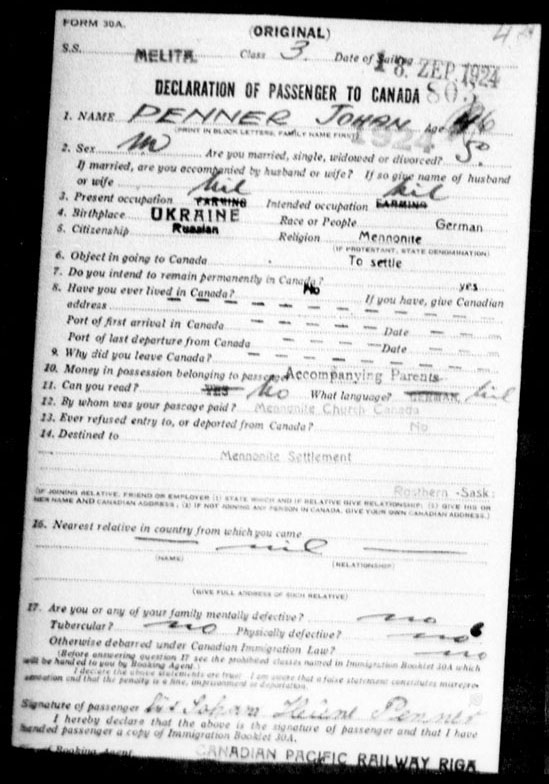 FORM 30A.
(ORIGINAL)
S.S. MELITA. Class 3. Date of Sailing 18. ZEP. 1924
DECLARATION OF PASSENGER TO CANADA 803
1. NAME PENNER JOHAN Age
(PRINT IN BLOCK LETTERS, FAMILY NAME FIRST) 1924
2. Sex m Are you married, single, widowed or divorced? S.
If married, are you accompanied by husband or wife? If so give name of husband
or wife nil nil
3. Present occupation FARMING Intended occupation FARMING
4. Birthplace UKRAINE Race or People German
5. Citizenship Russian Religion Mennonite
(IF PROTESTANT, STATE DENOMINATION)
6. Object in going to Canada To settle
7. Do you intend to remain permanently in Canada? yes
8. Have you ever lived in Canada? No If you have, give Canadian
address
Port of first arrival in Canada Date
Port of last departure from Canada Date
9. Why did you leave Canada?
10. Money in possession belonging to passenger Accompanying Parents
11. Can you read? YES No What language? GERMAN nil
12. By whom was your passage paid? Mennonite Church Canada
13. Ever refused entry to, or deported from Canada? No
14. Destined to
Mennonite Settlement
Rosthern -Sask:
(IF JOINING RELATIVE, FRIEND OR EMPLOYER (1) STATE WHICH AND IF RELATIVE GIVE RELATIONSHIP; (2) GIVE HIS OR
HER NAME AND CANADIAN ADDRESS; (3) IF NOT JOINING ANY PERSON IN CANADA, GIVE YOUR OWN CANADIAN ADDRESS.)
16. Nearest relative in country from which you came
nil
(NAME) (RELATIONSHIP)
(GIVE FULL ADDRESS OF SUCH RELATIVE)
17. Are you or any of your family mentally defective? no
Tubercular? no Physically defective? no
Otherwise debarred under Canadian Immigration Law? no
(Before answering question 17 see the prohibited classes named in Immigration Booklet 30A which
will be handed to you by Booking Agent.)
I declare the above statements are true: I am aware that a false statement constitutes misrepre-
sentation and that the penalty is a fine, imprisonment or deportation.
Signature of passenger Johan Helene Penner
I hereby declare that the above is the signature of passenger and that I have
handed passenger a copy of Immigration Booklet 30A.
Booking Agent CANADIAN PACIFIC RAILWAY RIGA